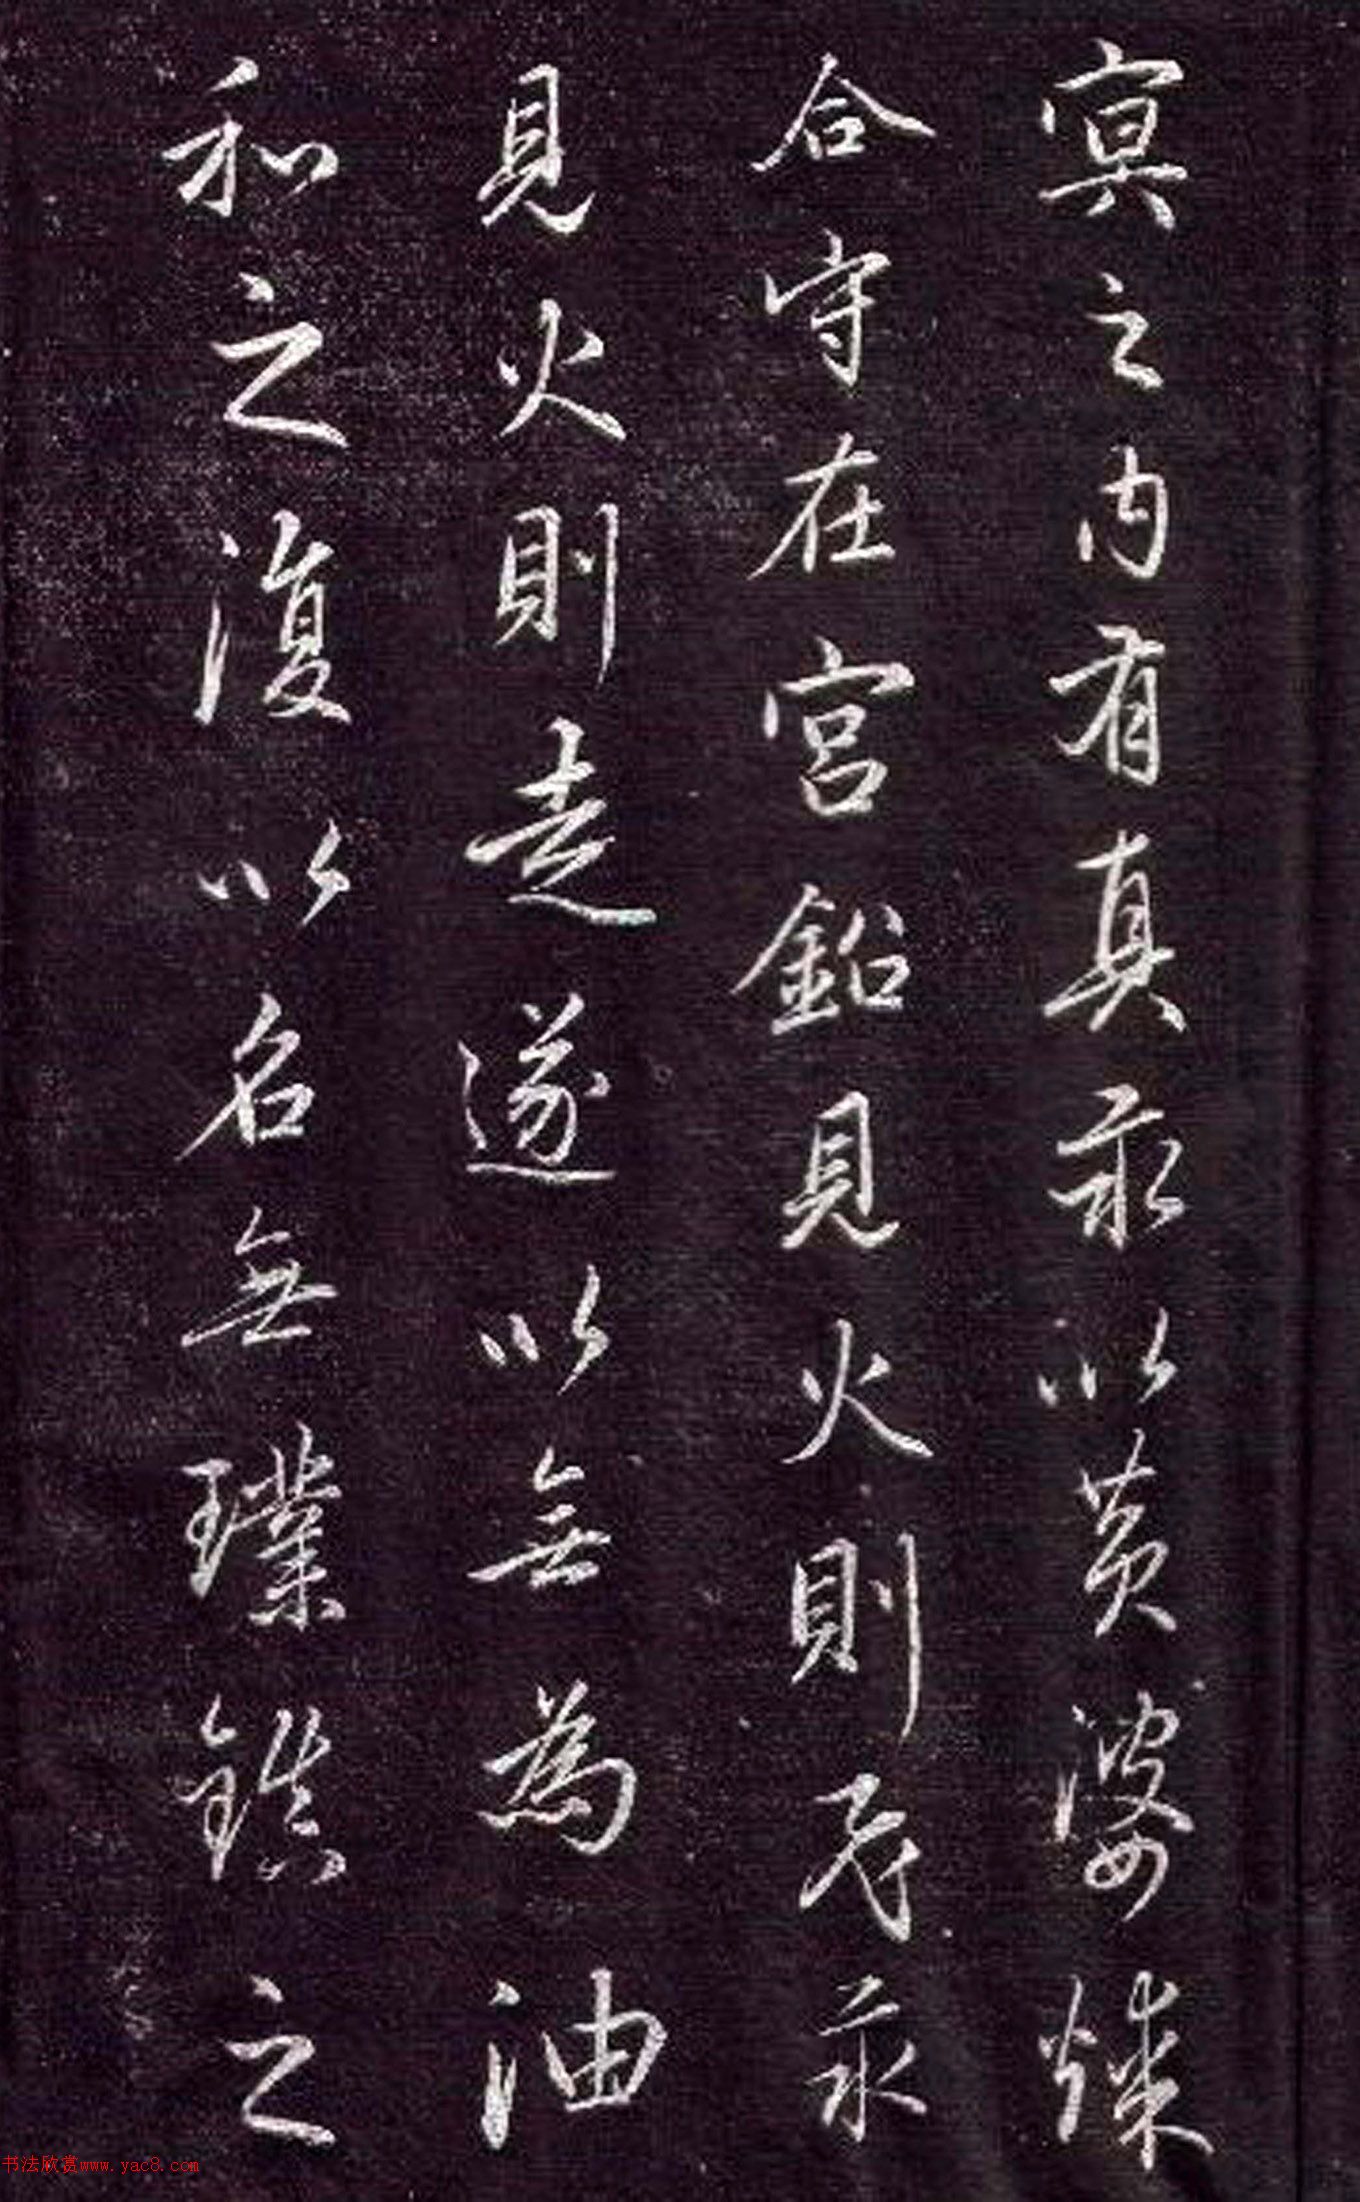 冥之内有真汞以黄婆媒
合守在宫鉛見火則飛汞
見火則走遂以無為油
和之復以名無璞鎮之
书法欣赏www.yac8.com